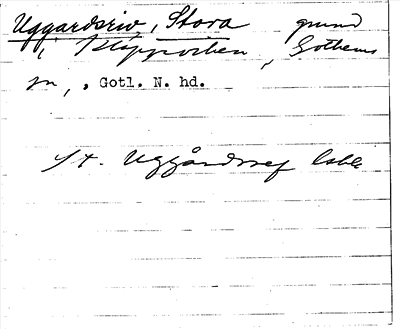 Uggardsriv, Stora grund
i Slappviken, Gothems
sn, , Gotl. N. hd.
St. Uggårdsref